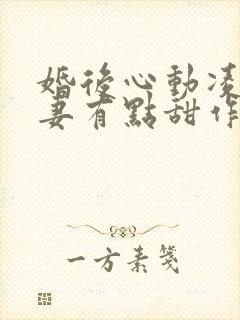 婚後心動凌
妻有點甜作
一方素箋